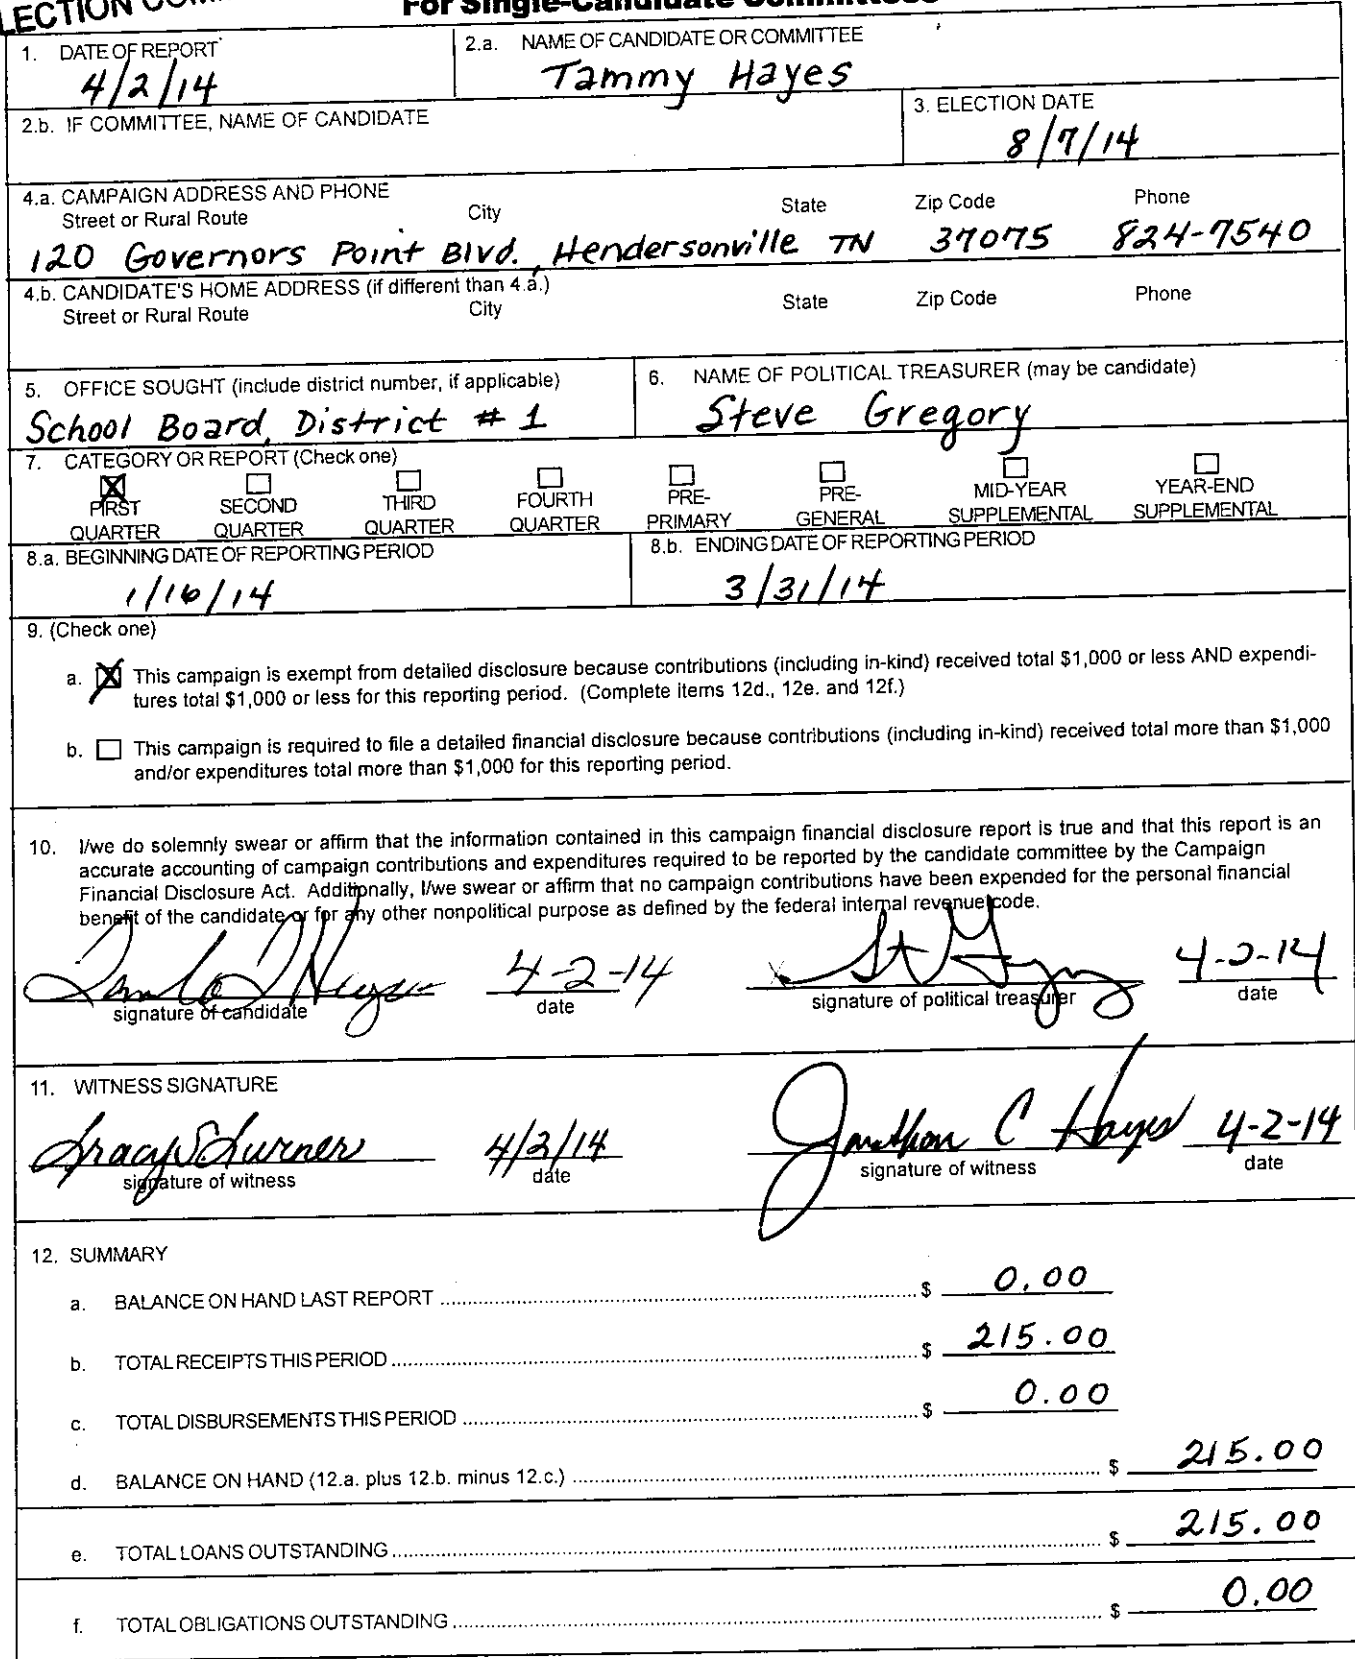 LECTION
For Single-Candidate Committees
1. DATE OF REPORT
4/2/14
2.a. NAME OF CANDIDATE OR COMMITTEE
Tammy Hayes
2.b. IF COMMITTEE, NAME OF CANDIDATE
3. ELECTION DATE
8/7/14
4.a. CAMPAIGN ADDRESS AND PHONE
Street or Rural Route City State Zip Code Phone
120 Governors Point Blvd., Hendersonville TN 37075 824-7540
4.b. CANDIDATE'S HOME ADDRESS (if different than 4.a.)
Street or Rural Route City State Zip Code Phone
5. OFFICE SOUGHT (include district number, if applicable)
School Board, District # 1
6. NAME OF POLITICAL TREASURER (may be candidate)
Steve Gregory
7. CATEGORY OR REPORT (Check one)
FIRST QUARTER
SECOND QUARTER
THIRD QUARTER
FOURTH QUARTER
PRE-PRIMARY
PRE-GENERAL
MID-YEAR SUPPLEMENTAL
YEAR-END SUPPLEMENTAL
8.a. BEGINNING DATE OF REPORTING PERIOD
1/16/14
8.b. ENDING DATE OF REPORTING PERIOD
3/31/14
9. (Check one)
a. This campaign is exempt from detailed disclosure because contributions (including in-kind) received total $1,000 or less AND expendi-
tures total $1,000 or less for this reporting period. (Complete items 12d., 12e. and 12f.)
b. This campaign is required to file a detailed financial disclosure because contributions (including in-kind) received total more than $1,000
and/or expenditures total more than $1,000 for this reporting period.
10. I/we do solemnly swear or affirm that the information contained in this campaign financial disclosure report is true and that this report is an
accurate accounting of campaign contributions and expenditures required to be reported by the candidate committee by the Campaign
Financial Disclosure Act. Additionally, I/we swear or affirm that no campaign contributions have been expended for the personal financial
benefit of the candidate or for any other nonpolitical purpose as defined by the federal internal revenue code.
4-2-14 4-2-14
signature of candidate date signature of political treasurer date
11. WITNESS SIGNATURE
Tracy S Turner 4/2/14 Jonathon C Hayes 4-2-14
signature of witness date signature of witness date
12. SUMMARY
a. BALANCE ON HAND LAST REPORT $ 0.00
b. TOTAL RECEIPTS THIS PERIOD $ 215.00
c. TOTAL DISBURSEMENTS THIS PERIOD $ 0.00
d. BALANCE ON HAND (12.a. plus 12.b. minus 12.c.) $ 215.00
e. TOTAL LOANS OUTSTANDING $ 215.00
f. TOTAL OBLIGATIONS OUTSTANDING $ 0.00